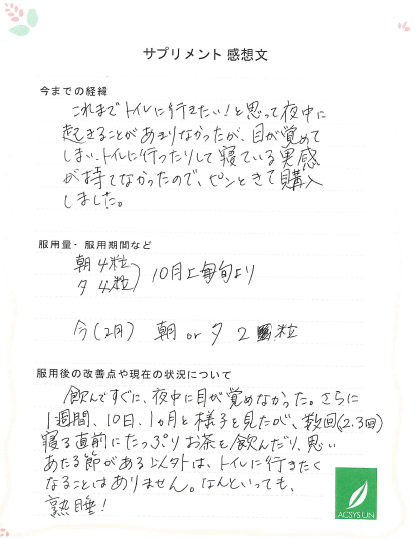 サプリメント 感想文
今までの経緯
これまでトイレに行きたい！と思って夜中に
起きることがあまりなかったが、目が覚めて
しまい、トイレに行ったりして寝ている実感
が持てなかったので、ピンときて購入
しました。
服用量・服用期間など
朝 4粒
夕 4粒 10月上旬より
今(2月) 朝 or 夕 2粒
服用後の改善点や現在の状況について
飲んですぐに、夜中に目が覚めなかった。さらに
1週間、10日、1ヵ月と様子を見たが、数回(2.3回)
寝る直前にたっぷりお茶を飲んだり、思い
あたる節がある以外は、トイレに行きたく
なることはありません。なんといっても、
熟睡！
ACSYS UN.